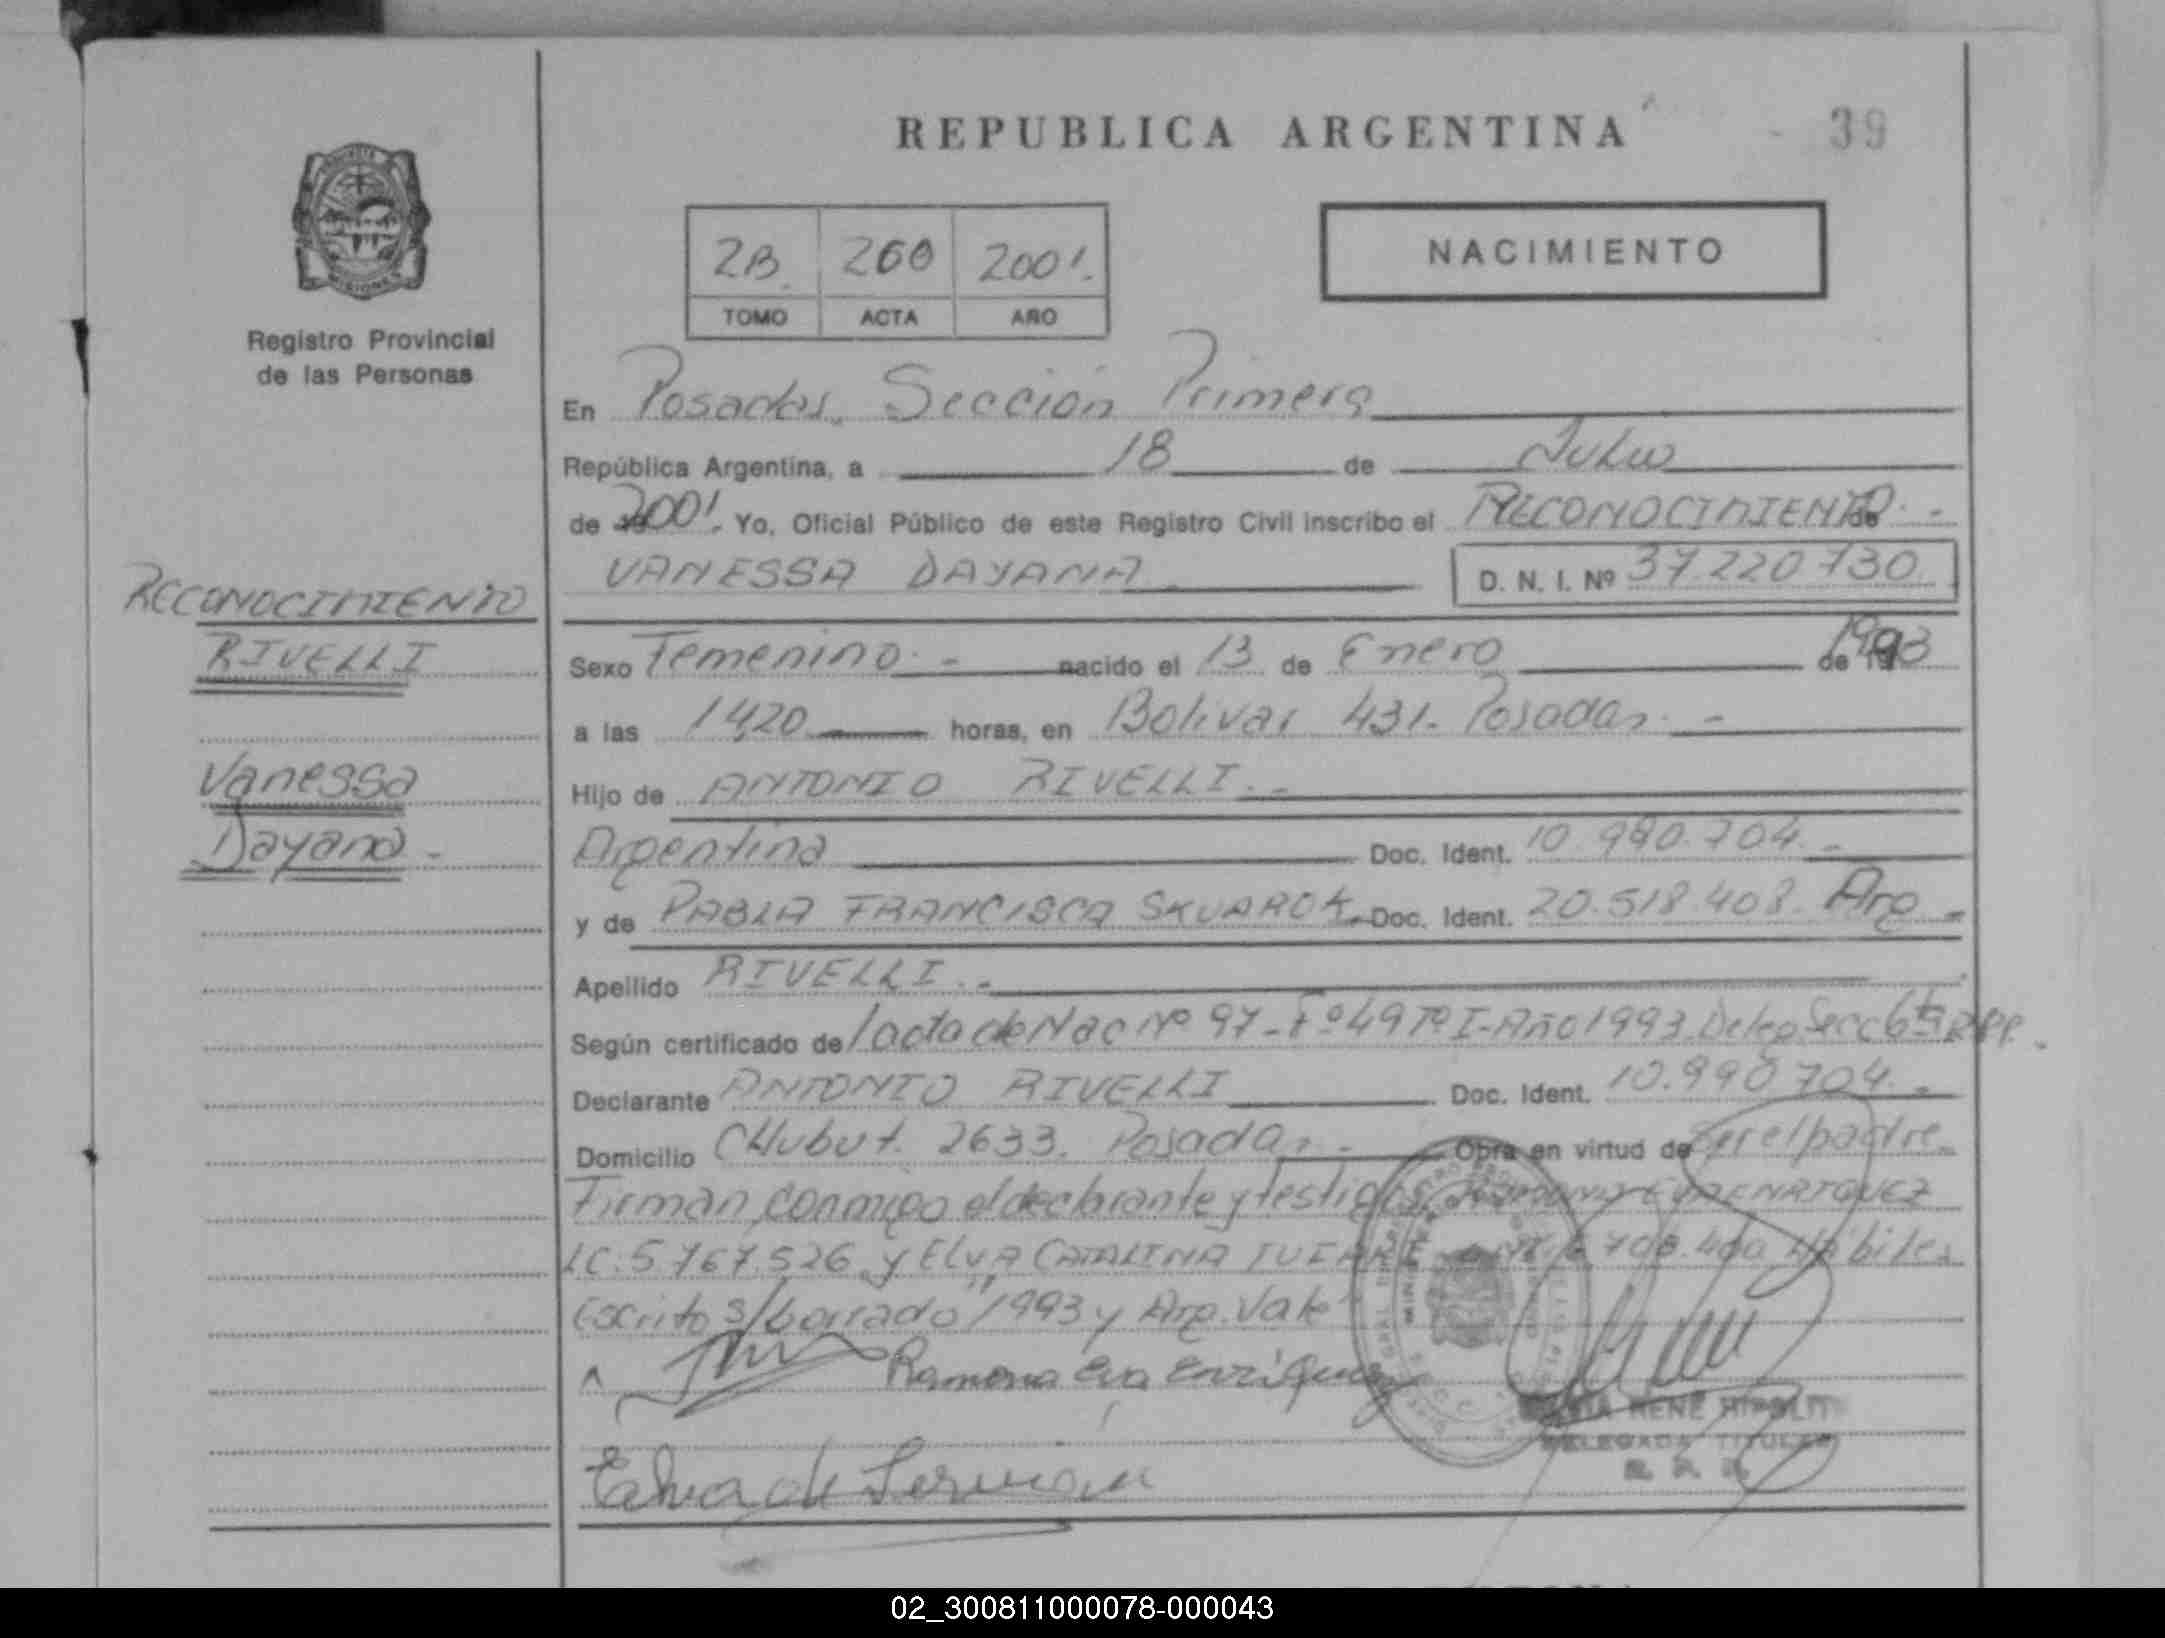 REPUBLICA ARGENTINA
39
2B. 260 2001.
TOMO ACTA AÑO
NACIMIENTO
Registro Provincial
de las Personas
En Posadas, Sección Primera
República Argentina, a 18 de Julio
de 2001. Yo, Oficial Público de este Registro Civil inscribo el RECONOCIMIENTO de
VANESSA DAYANA D. N. I. Nº 37.220.730
RECONOCIMIENTO
RIVELLI
Vanessa
Dayana -
Sexo Femenino. - nacido el 13 de Enero de 1993
a las 14,20 horas, en Bolivar 431. Posadas. -
Hijo de ANTONIO RIVELLI. -
Argentina Doc. Ident. 10.990.704. -
y de PABLA FRANCISCA SKUAROK Doc. Ident. 20.518.408. Arg -
Apellido RIVELLI. -
Según certificado de acta de Nac Nº 97 - Fº 49 Tº I - Año 1993. Deleg. Secc 6ta R.P.P.
Declarante ANTONIO RIVELLI Doc. Ident. 10.990.704. -
Domicilio CHubut. 2633. Posadas. - Obra en virtud de ser el padre.
Firman conmigo el declarante y testigos RAMONA EVA ENRIQUEZ
LC. 5.767.526 y ELVA CATALINA Hábiles
Escrito s/borrado "1993 y Arg. Vale"
Ramona Eva Enriquez
Elva de
RENE HIPOLIT
DELEGADA TITULAR
R. P. P.
02_300811000078-000043